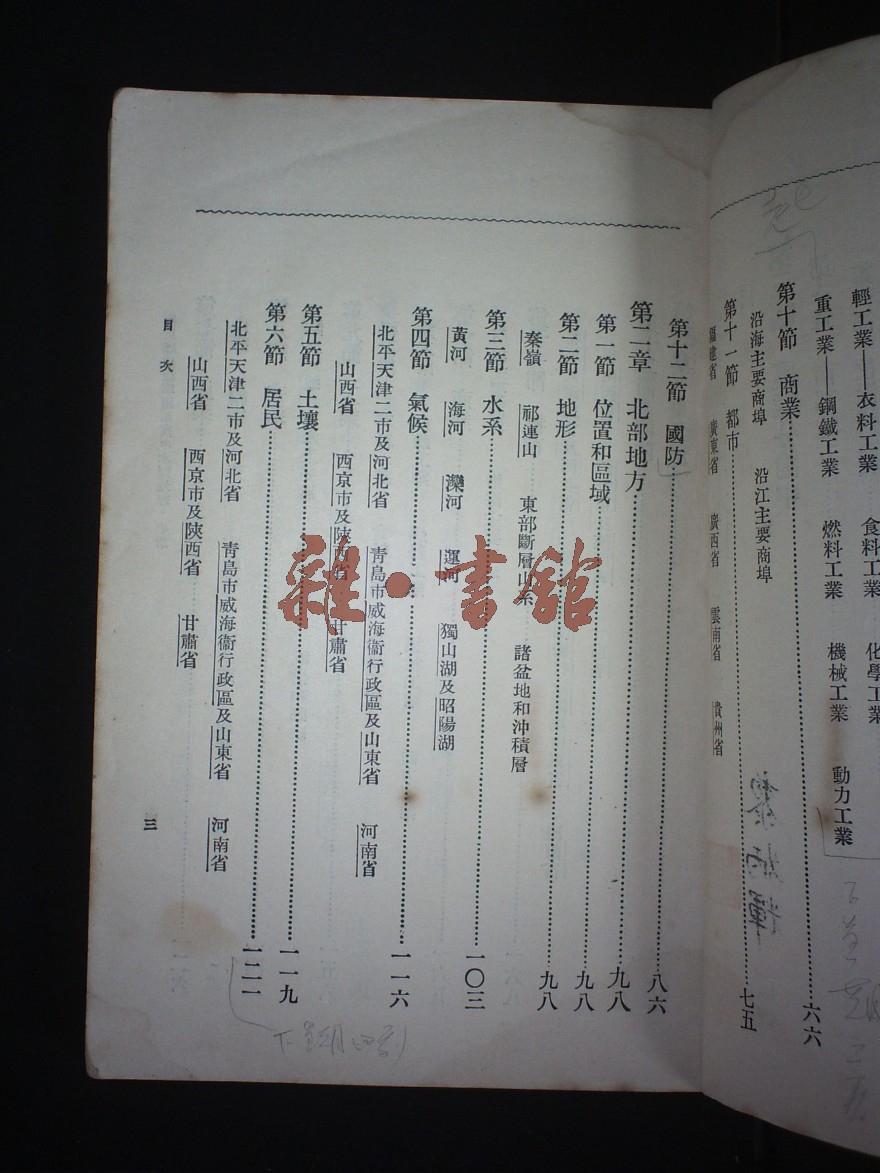 輕工業——衣料工業 食料工業 化學工業
重工業——鋼鐵工業 燃料工業 機械工業 動力工業
第十節 商業 六六
沿海主要商埠 沿江主要商埠
第十一節 都市 七五
福建省 廣東省 廣西省 雲南省 貴州省
第十二節 國防 八六
第二章 北部地方 九八
第一節 位置和區域 九八
第二節 地形 九八
秦嶺 祁連山 東部斷層山系 諸盆地和沖積層
第三節 水系 一〇三
黃河 海河 灤河 運河 獨山湖及昭陽湖
第四節 氣候 一一六
北平天津二市及河北省 青島市威海衞行政區及山東省 河南省
山西省 西京市及陝西省 甘肅省
第五節 土壤 一一九
第六節 居民 一二一
北平天津二市及河北省 青島市威海衞行政區及山東省 河南省
山西省 西京市及陝西省 甘肅省
目次
三
雜·書館